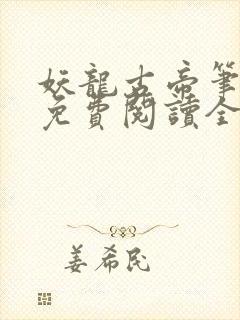 妖龍古帝筆
免費閱讀全
姜希民